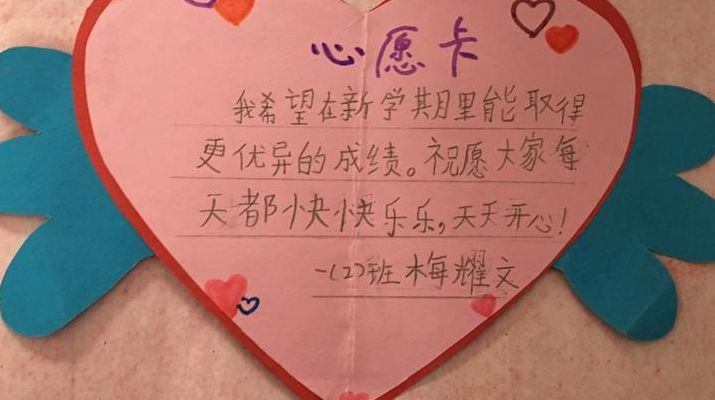 心愿卡
我希望在新学期里能取得
更优异的成绩。祝愿大家每
天都快快乐乐,天天开心!
一(2)班梅耀文